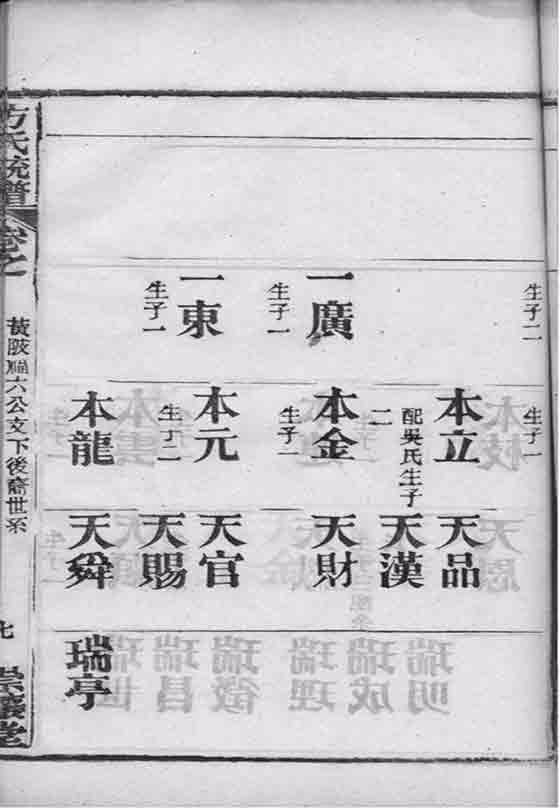 生子二
一廣
生子一
一東
生子一
生子一
本立
配吳氏生子
二
本金
生子一
本元
生子二
本龍
天品
天漢
天財
天官
天賜
天舜
瑞亭
方氏統譜
卷之
六公文下後裔世系
七